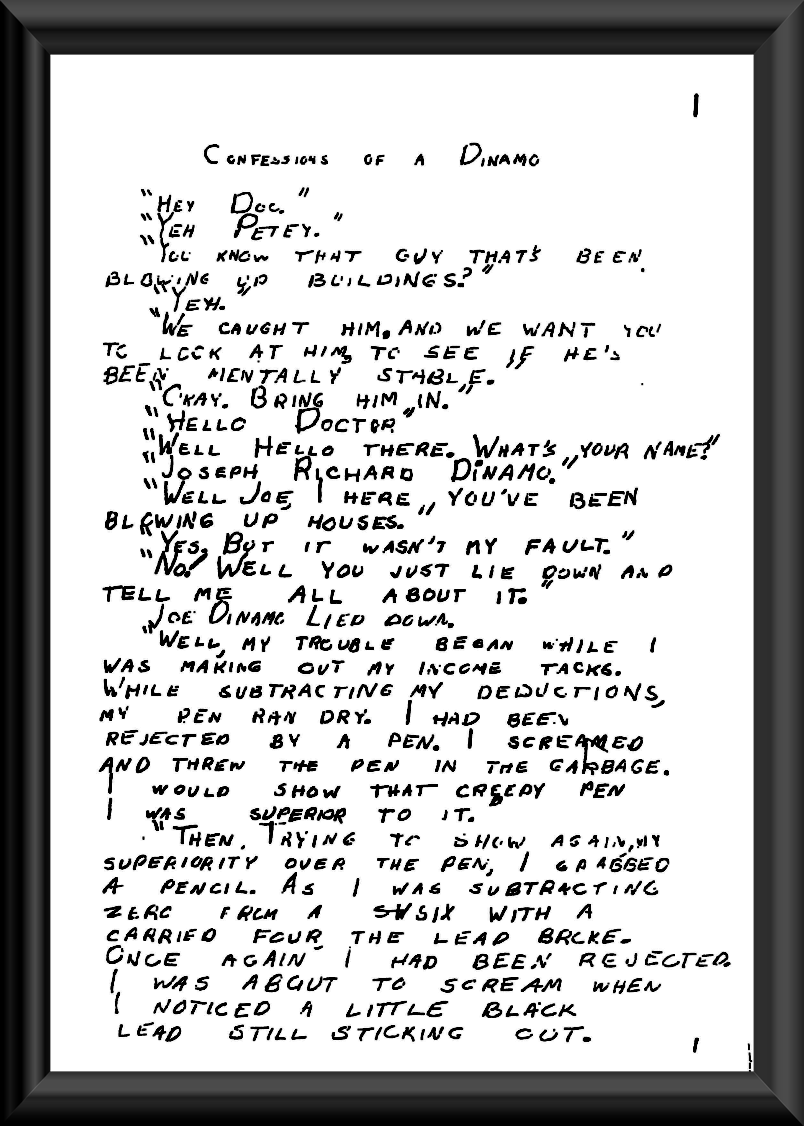 1
CONFESSIONS OF A DINAMO
"HEY DOC."
"YEH PETEY."
"YOU KNOW THAT GUY THAT'S BEEN
BLOWING UP BUILDINGS?"
"YEH."
"WE CAUGHT HIM, AND WE WANT YOU
TO LOOK AT HIM, TO SEE IF HE'S
BEEN MENTALLY STABLE."
"O'KAY. BRING HIM IN."
"HELLO DOCTOR"
"WELL HELLO THERE. WHAT'S YOUR NAME?"
"JOSEPH RICHARD DINAMO."
"WELL JOE, I HERE YOU'VE BEEN
BLOWING UP HOUSES."
"YES, BUT IT WASN'T MY FAULT."
"NO! WELL YOU JUST LIE DOWN AND
TELL ME ALL ABOUT IT."
JOE DINAMO LIED DOWN.
"WELL, MY TROUBLE BEGAN WHILE I
WAS MAKING OUT MY INCOME TACKS.
WHILE SUBTRACTING MY DEDUCTIONS,
MY PEN RAN DRY. I HAD BEEN
REJECTED BY A PEN. I SCREAMED
AND THREW THE PEN IN THE GARBAGE.
I WOULD SHOW THAT CREEPY PEN
I WAS SUPERIOR TO IT.
"THEN, TRYING TO SHOW AGAIN, MY
SUPERIORITY OVER THE PEN, I GRABBED
A PENCIL. AS I WAS SUBTRACTING
ZERO FROM A SIX WITH A
CARRIED FOUR, THE LEAD BROKE.
ONCE AGAIN I HAD BEEN REJECTED.
I WAS ABOUT TO SCREAM WHEN
I NOTICED A LITTLE BLACK
LEAD STILL STICKING OUT.
1